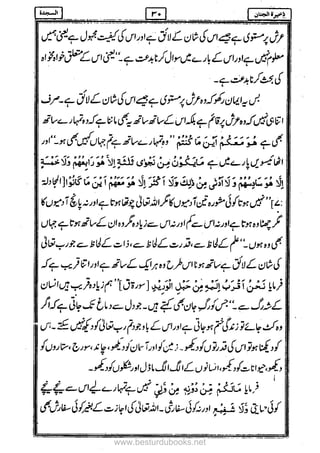 السجدة ۳۰ ذخیرۃ الجنان
عرش پر مستوی ہے جیسے اس کی شان کے لائق ہے اور اس کی کیفیت مجہول ہے یعنی ہمیں
معلوم نہیں ہے اور اس کے بارے میں سوال کرنا بدعت ہے۔" یعنی اس کے متعلق خواہ مخواہ
کی بحث کرنا بدعت ہے۔
بس یہ ایمان رکھو کہ وہ عرش پر مستوی ہے جیسے اس کی شان کے لائق ہے۔ صرف
اتنا ہی نہیں کہ وہ عرش پر قائم ہے بلکہ اس کے ساتھ ساتھ یہ بھی ماننا ہے کہ وہ تمہارے ساتھ
بھی ہے هُوَ مَعَكُمْ اَيْنَ مَا كُنْتُمْ "وہ تمہارے ساتھ ہے تم جہاں کہیں بھی ہو۔" اور
اٹھائیسویں پارے میں ہے مَا يَكُوْنُ مِنْ نَّجْوٰى ثَلٰثَةٍ اِلَّا هُوَ رَابِعُهُمْ وَلَا خَمْسَةٍ
اِلَّا هُوَ سَادِسُهُمْ وَلَا اَدْنٰى مِنْ ذٰلِكَ وَلَا اَكْثَرَ اِلَّا هُوَ مَعَهُمْ اَيْنَ مَا كَانُوْا [المجادلہ
:۷] "نہیں ہوتا کوئی مشورہ تین آدمیوں کا مگر اللہ تعالیٰ چوتھا ہوتا ہے اور نہ پانچ آدمیوں کا
مگر چھٹا وہ ہوتا ہے اور نہ اس سے کم اور نہ اس سے زیادہ مگر وہ ان کے ساتھ ہوتا ہے جہاں
بھی وہ ہوں۔" علم کے لحاظ سے، قدرت کے لحاظ سے، ذات کے لحاظ سے جو رب تعالیٰ
کی شان کے لائق ہے ساتھ ہونا اس طرح وہ ہر ایک کے ساتھ ہے اور اتنا قریب ہے کہ
فرمایا نَحْنُ اَقْرَبُ اِلَيْهِ مِنْ حَبْلِ الْوَرِيْدِ [سورۃ ق] "ہم زیادہ قریب ہیں انسان
کے شہ رگ سے۔" جس کو رگ جان بھی کہتے ہیں۔ جو دل سے دماغ تک جاتی ہے کہ اگر
وہ کٹ جائے تو زندگی ختم ہو جاتی ہے اور اس کے باوجود تم رب تعالیٰ کو دیکھ نہیں سکتے۔ بس
کو دیکھنا ہو تو اس کی قدرتوں کو دیکھو۔ زمین کو اور آسمان کو دیکھو، چاند، سورج، ستاروں کو
دیکھو، حیوانات کو دیکھو، انسانوں کے الگ الگ ماڈل اور شکلوں کو دیکھو۔
فرمایا مَالَكُمْ مِّنْ دُوْنِهٖ مِنْ وَّلِيٍّ نہیں ہے تمہارے لیے اس سے نیچے نیچے
کوئی حمایتی وَّلَا شَفِيْعٍ اور نہ کوئی سفارشی۔ اللہ تعالیٰ کی اجازت کے بغیر کوئی سفارش بھی
www.besturdubooks.net